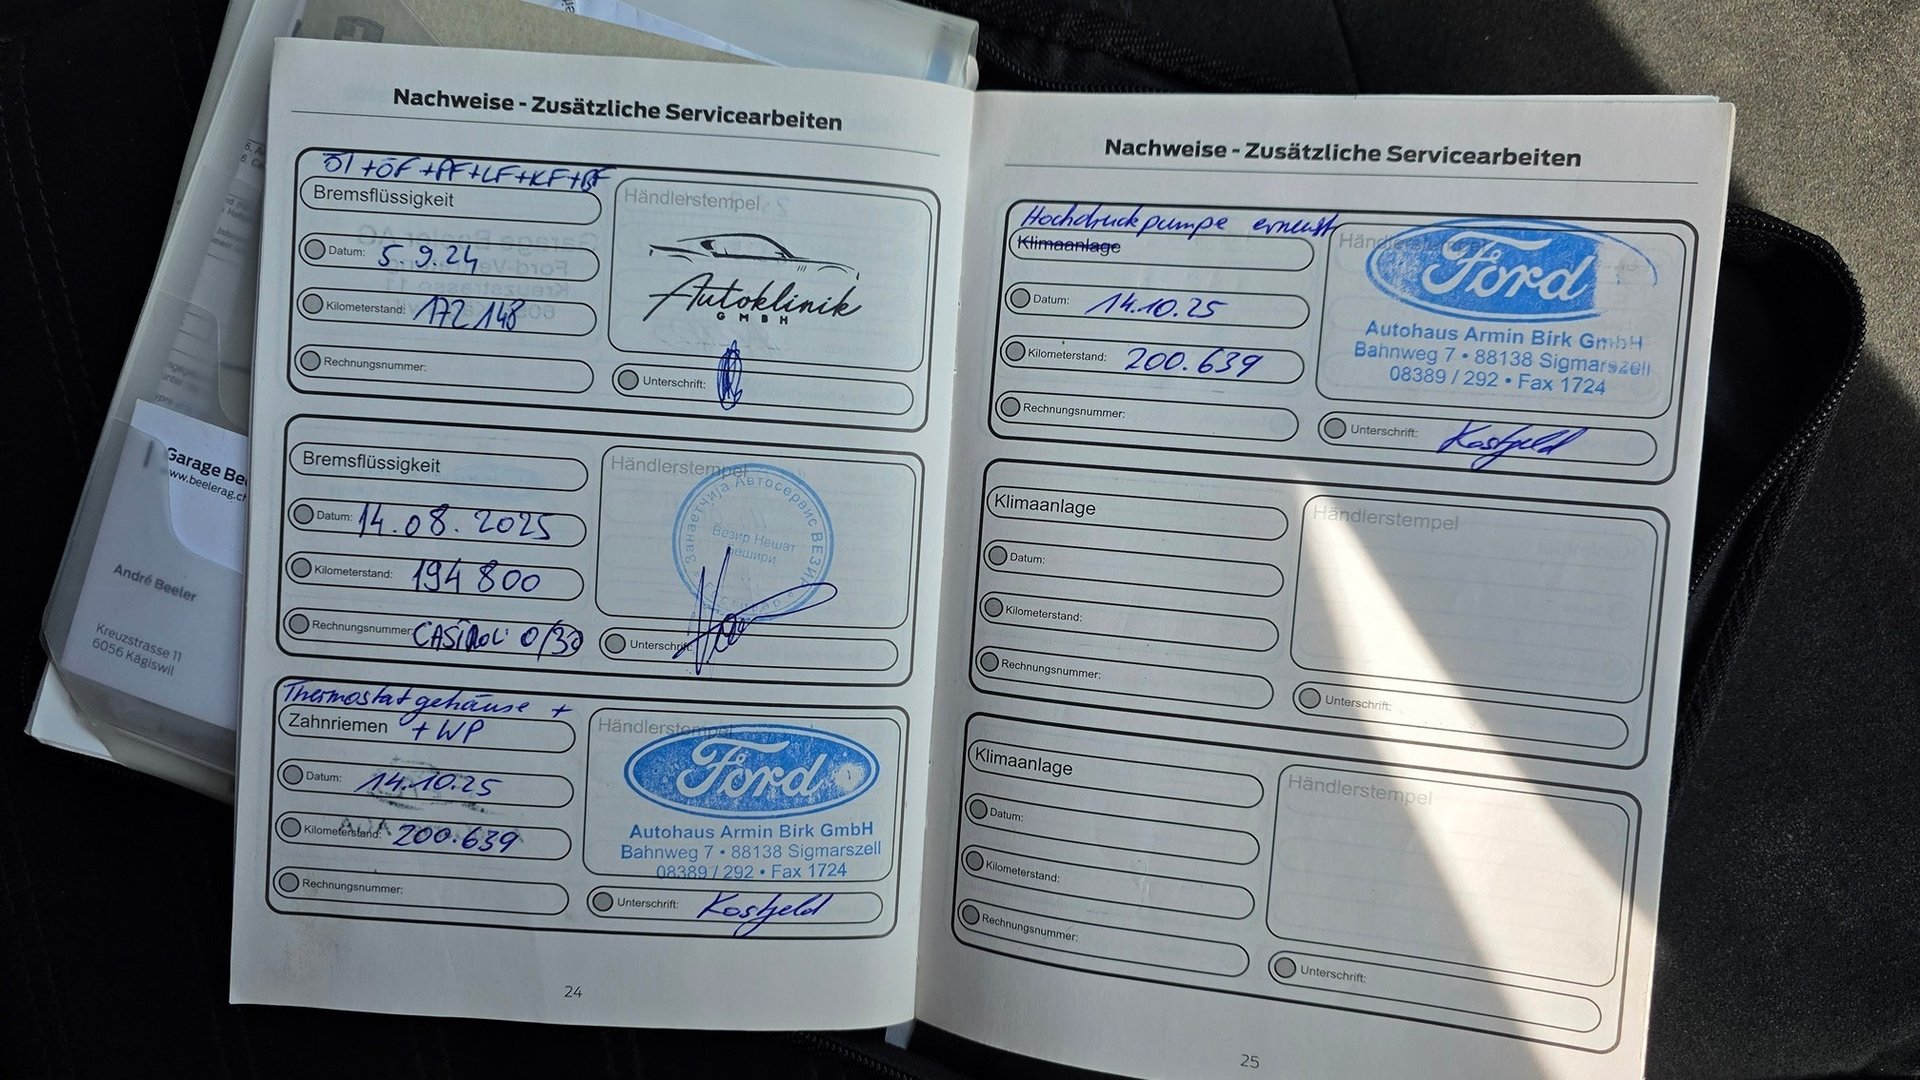 Nachweise - Zusätzliche Servicearbeiten
Öl + ÖF + PF + LF + KF + BF
Bremsflüssigkeit
Händlerstempel
Datum: 5.9.24
Kilometerstand: 172 148
Rechnungsnummer:
Autoklinik
GMBH
Unterschrift:
Bremsflüssigkeit
Händlerstempel
Datum: 14.08.2025
Kilometerstand: 194 800
Rechnungsnummer: CASTROL 0/30
Занаетчија Автосервис ВЕЗИР
Везир Нешат
Бешири
Unterschrift:
Thermostatgehäuse +
Zahnriemen + WP
Händlerstempel
Datum: 14.10.25
Kilometerstand: 200.639
Rechnungsnummer:
Ford
Autohaus Armin Birk GmbH
Bahnweg 7 • 88138 Sigmarszell
08389 / 292 • Fax 1724
Unterschrift: Kostgeld
24
Nachweise - Zusätzliche Servicearbeiten
Hochdruckpumpe erneuert
Klimaanlage
Händlerstempel
Datum: 14.10.25
Kilometerstand: 200.639
Rechnungsnummer:
Ford
Autohaus Armin Birk GmbH
Bahnweg 7 • 88138 Sigmarszell
08389 / 292 • Fax 1724
Unterschrift: Kostgeld
Klimaanlage
Händlerstempel
Datum:
Kilometerstand:
Rechnungsnummer:
Unterschrift:
Klimaanlage
Händlerstempel
Datum:
Kilometerstand:
Rechnungsnummer:
Unterschrift:
25
Garage Bee
www.beelerag.ch
André Beeler
Kreuzstrasse 11
6056 Kägiswil